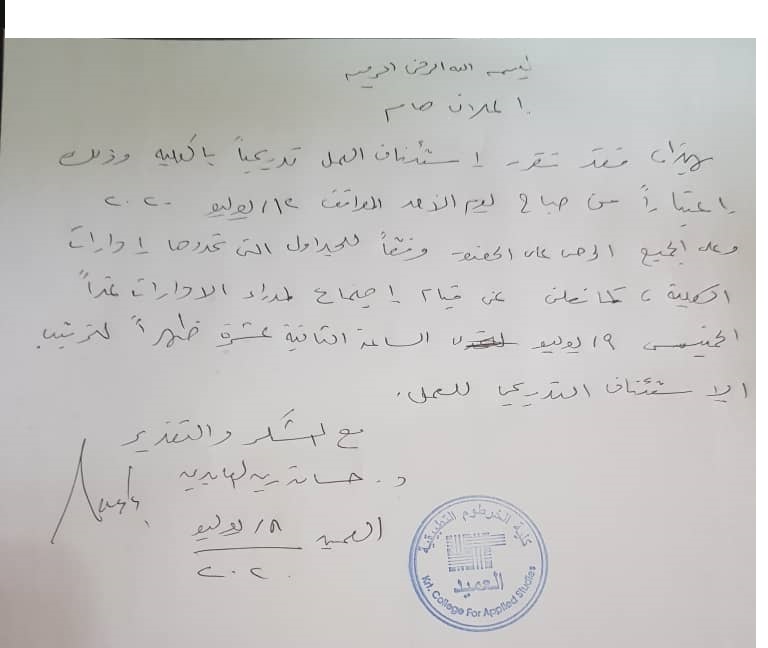 بسم الله الرحمن الرحيم
إعلان هام
بهذا فقد تقرر إستئناف العمل تدريجياً بالكلية وذلك
إعتباراً من صباح يوم الأحد الموافق يوليو ٢٠٢٠
وعلى الجميع الحرص على الحضور وفقاً للجداول التي تحددها إدارات
الكلية ، كما نعلن عن قيام إجتماع لمدراء الادارات غداً
الخميس ١٩ يوليو الساعة الثانية عشرة ظهراً لترتيب
الإستئناف التدريجي للعمل.
مع الشكر والتقدير
د.
العميد ١٨ يوليو
٢٠٢٠
كلية الخرطوم التطبيقية
العميد
Krt. College For Applied Studies